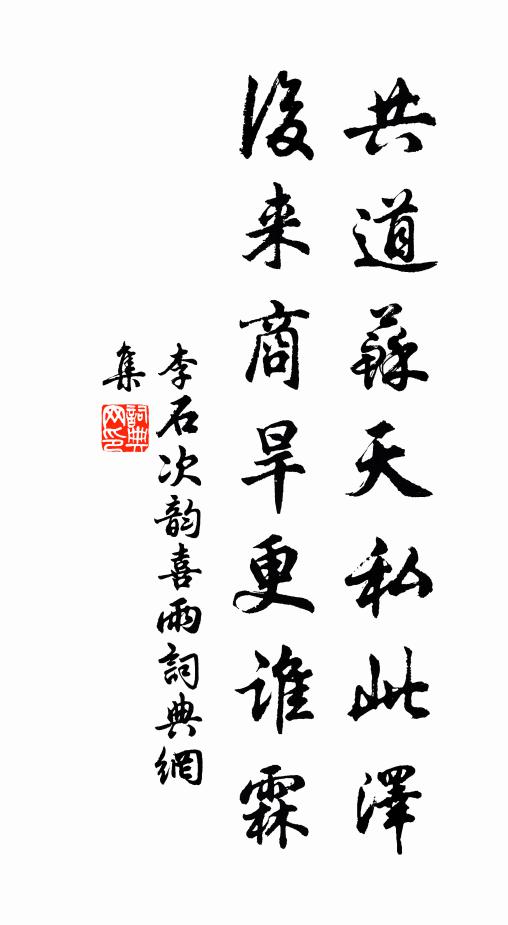 共道蘇天私此澤
後来商旱更谁霖
李石次韵喜雨詞典網
集
詞典网印